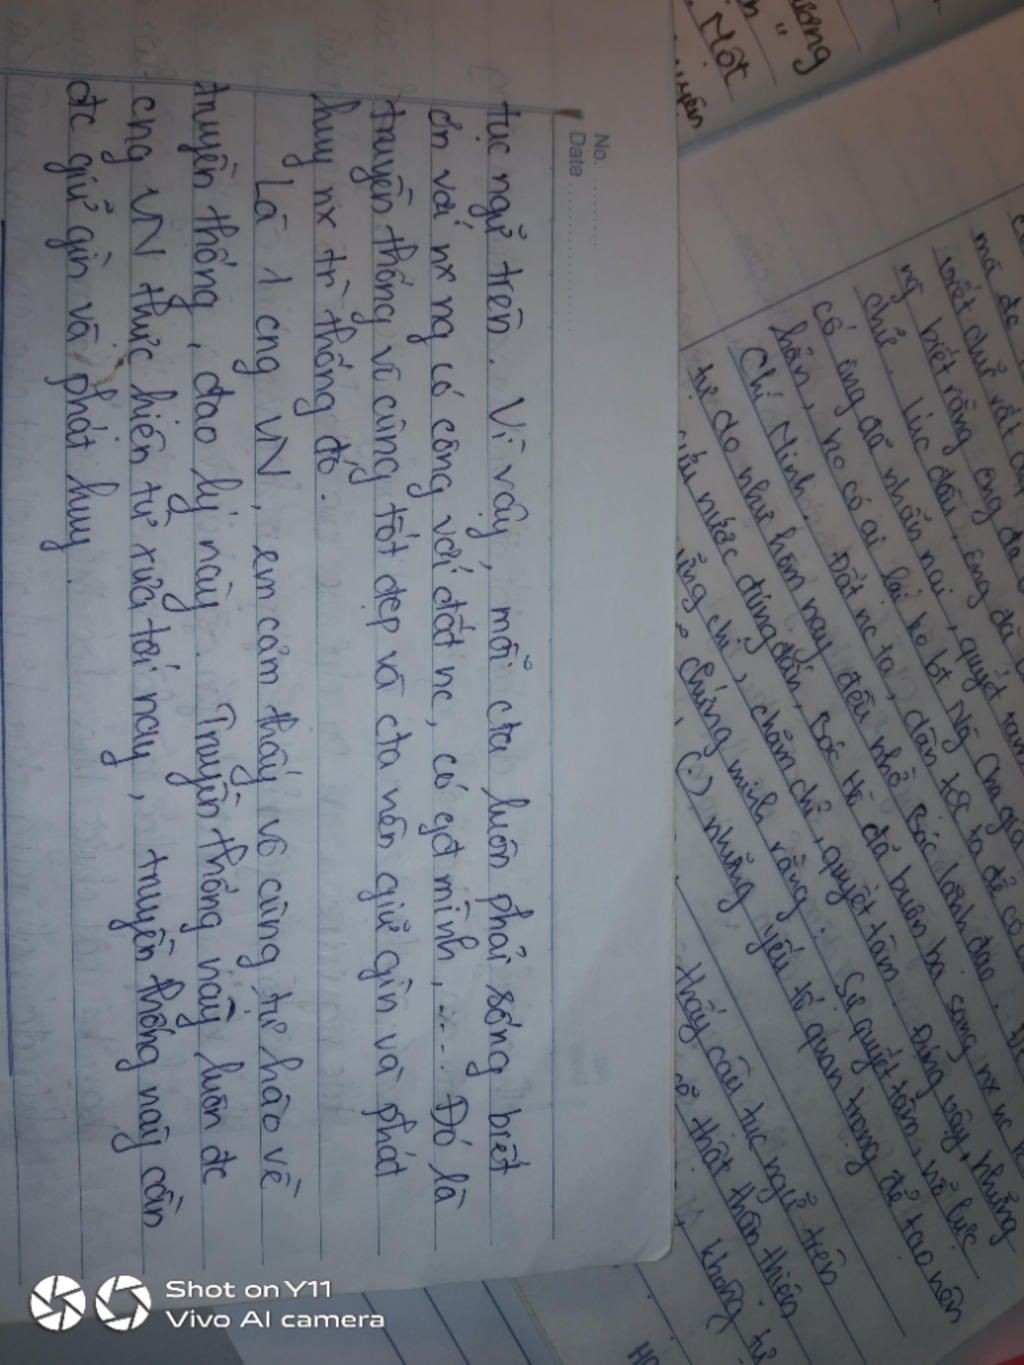 No. ............
Date ....................
tục ngữ trên. Vì vậy, mỗi cta luôn phải sống biết
ơn với nx ng có công với đất nc, có gđ mình, .... Đó là
truyền thống vô cùng tốt đẹp và cta nên giữ gìn và phát
huy nx tr thống đó.
Là 1 cng VN, em cảm thấy vô cùng tự hào về
truyền thống, đạo lý này. Truyền thống này luôn đc
cng VN thực hiện từ xưa tới nay, truyền thống này cần
đc giữ gìn và phát huy
ương
Một
mà đc
biết chữ rất đẹp
ng biết rằng ông đã
chữ. Lúc đầu, ông đã
có ông đã nhẫn nại, quyết tâm
hân, ko có ai lại ko bt Ng Cha già
Chí Minh. Đất nc ta, dân tộc ta để có
tự do như hôm nay đều nhờ Bác lãnh đạo.
cứu nước đúng đắn, Bác Hồ đã buôn ba sang nx nc
chỉ, chăm chỉ, quyết tâm. Đúng vậy, những
Chứng minh rằng: Sự quyết tâm, nỗ lực
(.) những yếu tố quan trọng để tạo nên
thấy câu tục ngữ trên
thật thân thiện
không
Shot on Y11
Vivo AI camera